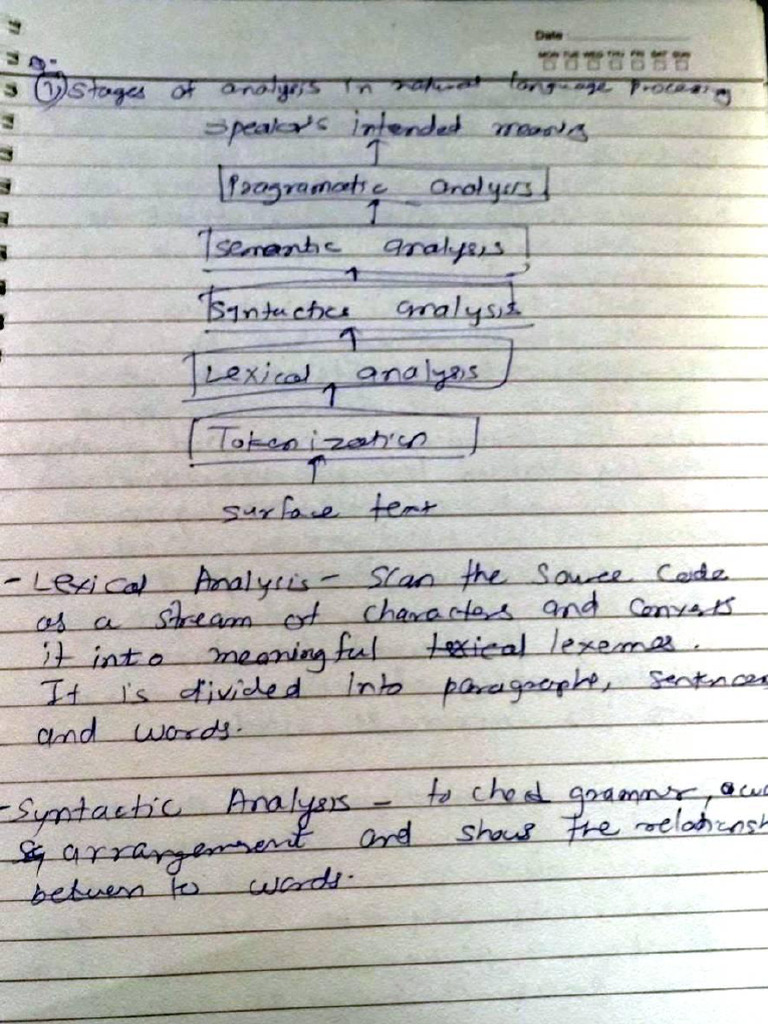 Date
MON TUE WED THU FRI SAT SUN
Q.
1) Stages of analysis in natural language processing
speaker's intended meaning
Pragramatic analysis
Semantic analysis
Syntactics analysis
Lexical analysis
Tokenization
surface text
- Lexical Analysis - Scan the source code
as a stream of characters and converts
it into meaningful lexical lexemes.
It is divided into paragraphs, sentences
and words.
- Syntactic Analysis - to check grammer,
arrangement and shows the relationsh
between to words.